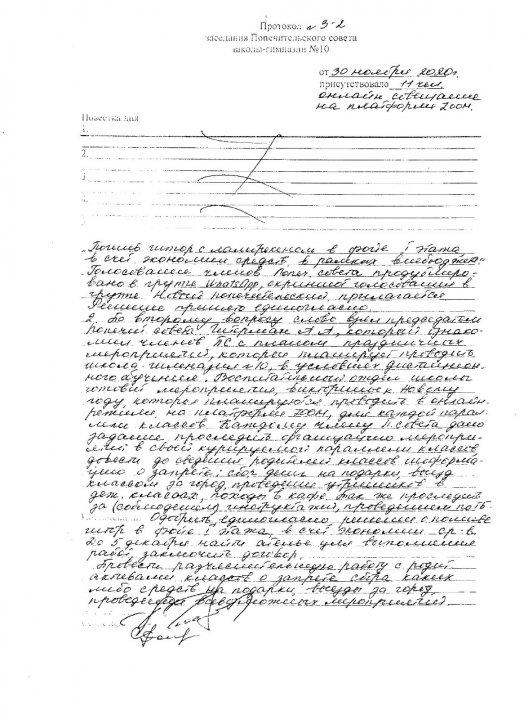 Протокол № 3-2
заседания Попечительского совета
школы-гимназии №10
от 30 ноября 2020г.
присутствовало 11 чел.
онлайн совещание
на платформе ZOOM.
Повестка дня
1.
2.
3.
4.
Пошив штор с ламбрекеном в фойе I этажа
в счёт экономии средств, в рамках внебюджета
Голосование членов Попеч. совета продублиро-
вано в группе WhatsApp, скриншот голосования в
группе Новый попечительский, прилагается
Решение принято единогласно.
2. По второму вопросу слово взял председатель
Попечит. совета А.А, который ознако-
мил членов ПС с планом праздничных
мероприятий, которые планирует проводить
школа-гимназия №10, в условиях дистанцион-
ного обучения. Воспитательный отдел школы
готовит мероприятия, викторины к Новому
году, которые планируются проводить в онлайн
режиме на платформе ZOOM, для каждой парал-
лели классов. Каждому члену П. совета дано
задание проследить организацию меропри-
ятий в своей курируемой параллели классов,
довести до сведения родителей классов информа-
цию о запрете: сбор денег на подарки, выезд
классов за город, проведение утренников в
дет. классах, походы в кафе. Так же проследить
за (соблюдением) инструктажей, проведением по ТБ.
Одобрить, единогласно, решение о пошиве
штор в фойе 1 этажа, в счёт экономии ср-в.
До 5 декабря найти ателье для выполнения
работ, заключить договор.
Провести разъяснительную работу с родит.
активами классов о запрете сбора каких
либо средств на подарки, выезды за город,
проведения всевозможных мероприятий